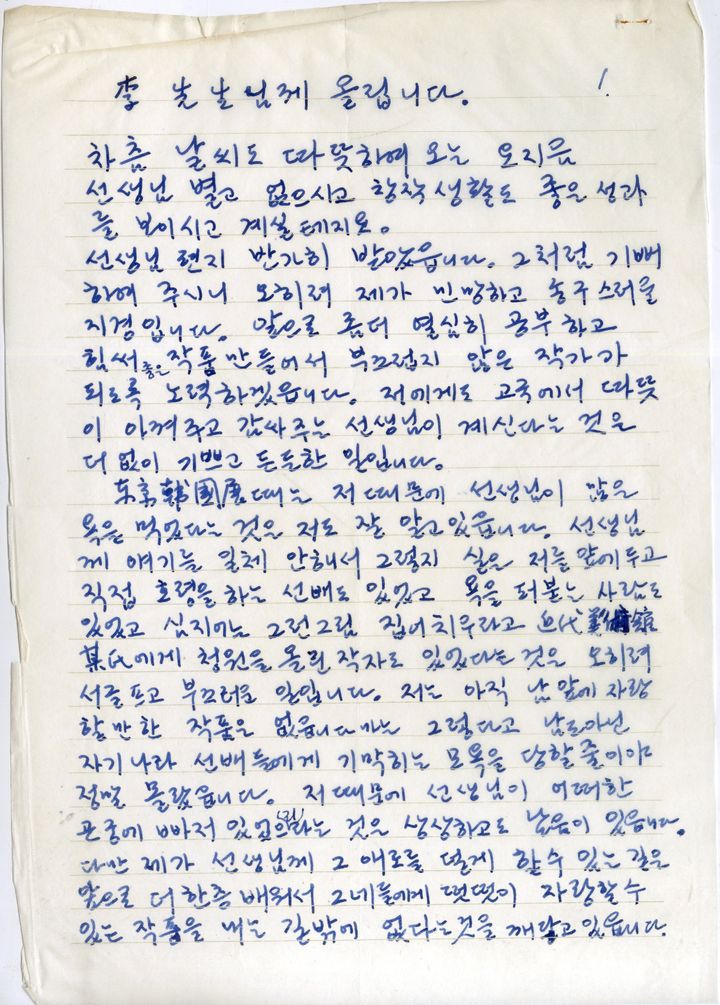 李 선생님께 올립니다. 1.
차츰 날씨도 따뜻하여 오는 요지음
선생님 별고 없으시고 창작생활도 좋은 성과
를 보이시고 계실테지요.
선생님 편지 반가히 받았읍니다. 그처럼 기뻐
하여 주시니 오히려 제가 민망하고 송구스러울
지경입니다. 앞으로 좀더 열심히 공부하고
힘써 좋은 작품 만들어서 부끄럽지 않은 작가가
되도록 노력하겠읍니다. 저에게도 고국에서 따뜻
이 아껴주고 감싸주는 선생님이 계신다는 것은
더없이 기쁘고 든든한 일입니다.
东京韓國展때는 저 때문에 선생님이 많은
욕을 먹었다는 것은 저도 잘 알고 있읍니다. 선생님
께 얘기는 일체 안해서 그렇지 실은 저를 앞에 두고
직접 호령을 하는 선배도 있었고 욕을 퍼붙는 사람도
있었고 심지어는 그런그림 집어치우라고 近代美術館
某氏에게 청원을 올린 작자도 있었다는 것은 오히려
서글프고 부끄러운 일입니다. 저는 아직 남 앞에 자랑
할 만한 작품은 없읍니다마는 그렇다고 남도아닌
자기나라 선배들에게 기막히는 모욕을 당할 줄이야
정말 몰랐읍니다. 저 때문에 선생님이 어떠한
곤궁에 빠져 있었으리라는 것은 상상하고도 남음이 있읍니다.
다만 제가 선생님께 그 애로를 덜게 할 수 있는 길은
앞으로 더한층 배워서 그네들에게 떳떳이 자랑할 수
있는 작품을 내는 길밖에 없다는것을 깨닫고 있읍니다.